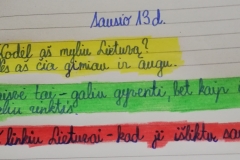 Sausio 13 d.
Kodėl aš myliu Lietuvą?
es aš čia gimiau ir augu.
tai - galiu gyventi, bet kaip
rinktis.
linkiu Lietuvai - kad ji išliktų